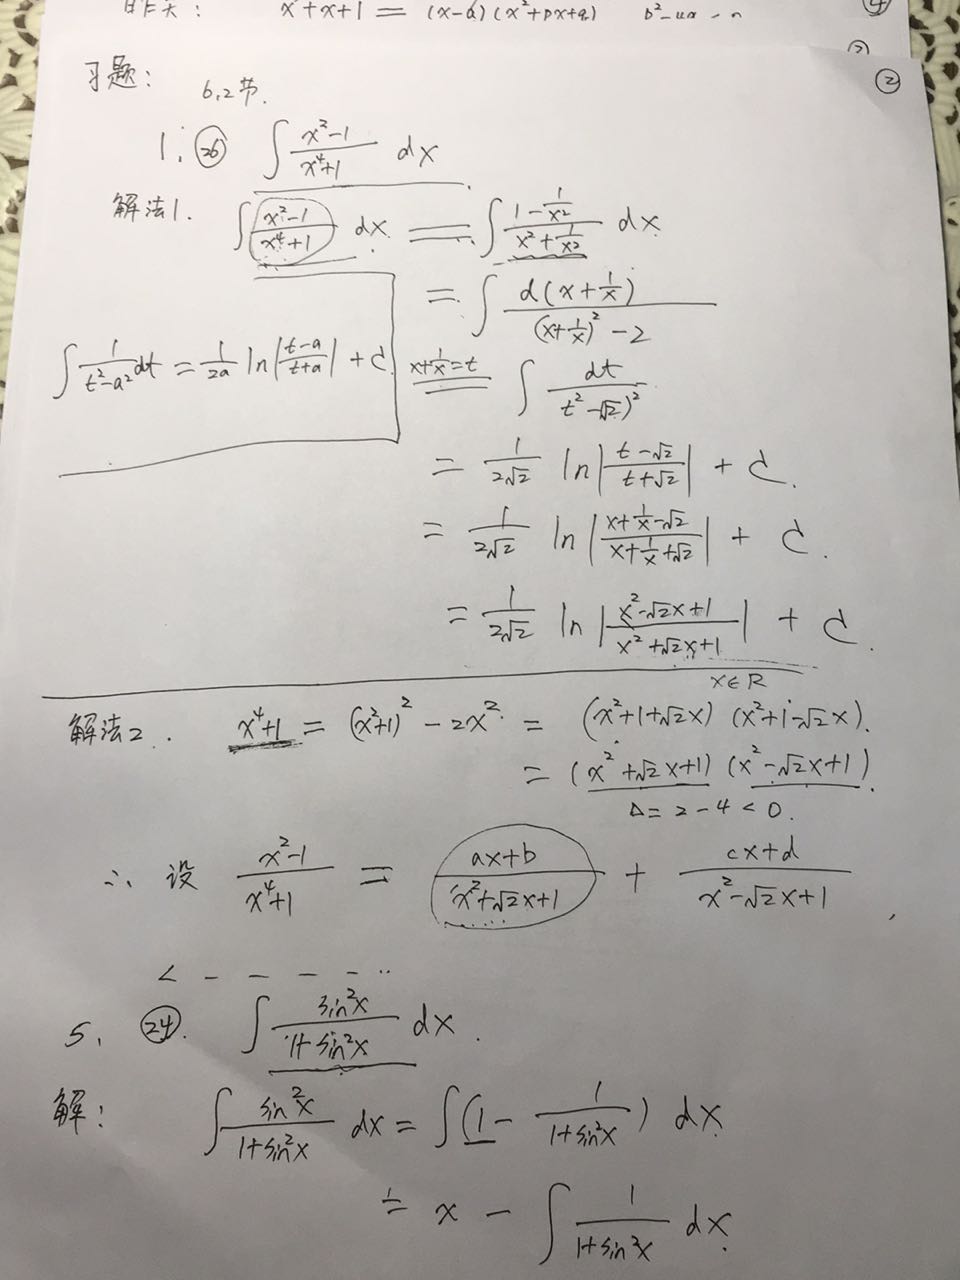 x + x + 1 = (x-a)(x²+px+q)
④
②
②
习题:
6.2节.
1. ㉖ ∫ (x²-1)/(x⁴+1) dx
解法1. ∫ (x²-1)/(x⁴+1) dx = ∫ (1 - 1/x²)/(x² + 1/x²) dx
= ∫ d(x + 1/x)/((x+1/x)² - 2)
∫ 1/(t²-a²) dt = 1/(2a) ln|(t-a)/(t+a)| + C
x+1/x=t ∫ dt/(t²-√2)²
= 1/(2√2) ln|(t-√2)/(t+√2)| + C.
= 1/(2√2) ln|(x+1/x-√2)/(x+1/x+√2)| + C.
= 1/(2√2) ln|(x²-√2x+1)/(x²+√2x+1)| + C.
x∈R
解法2. x⁴+1 = (x²+1)² - 2x² = (x²+1+√2x)(x²+1-√2x).
= (x²+√2x+1)(x²-√2x+1).
Δ=2-4<0.
∴ 设 (x²-1)/(x⁴+1) = (ax+b)/(x²+√2x+1) + (cx+d)/(x²-√2x+1)
5. ㉔. ∫ sin²x/(1+sin²x) dx.
解: ∫ sin²x/(1+sin²x) dx = ∫(1 - 1/(1+sin²x)) dx
= x - ∫ 1/(1+sin²x) dx.